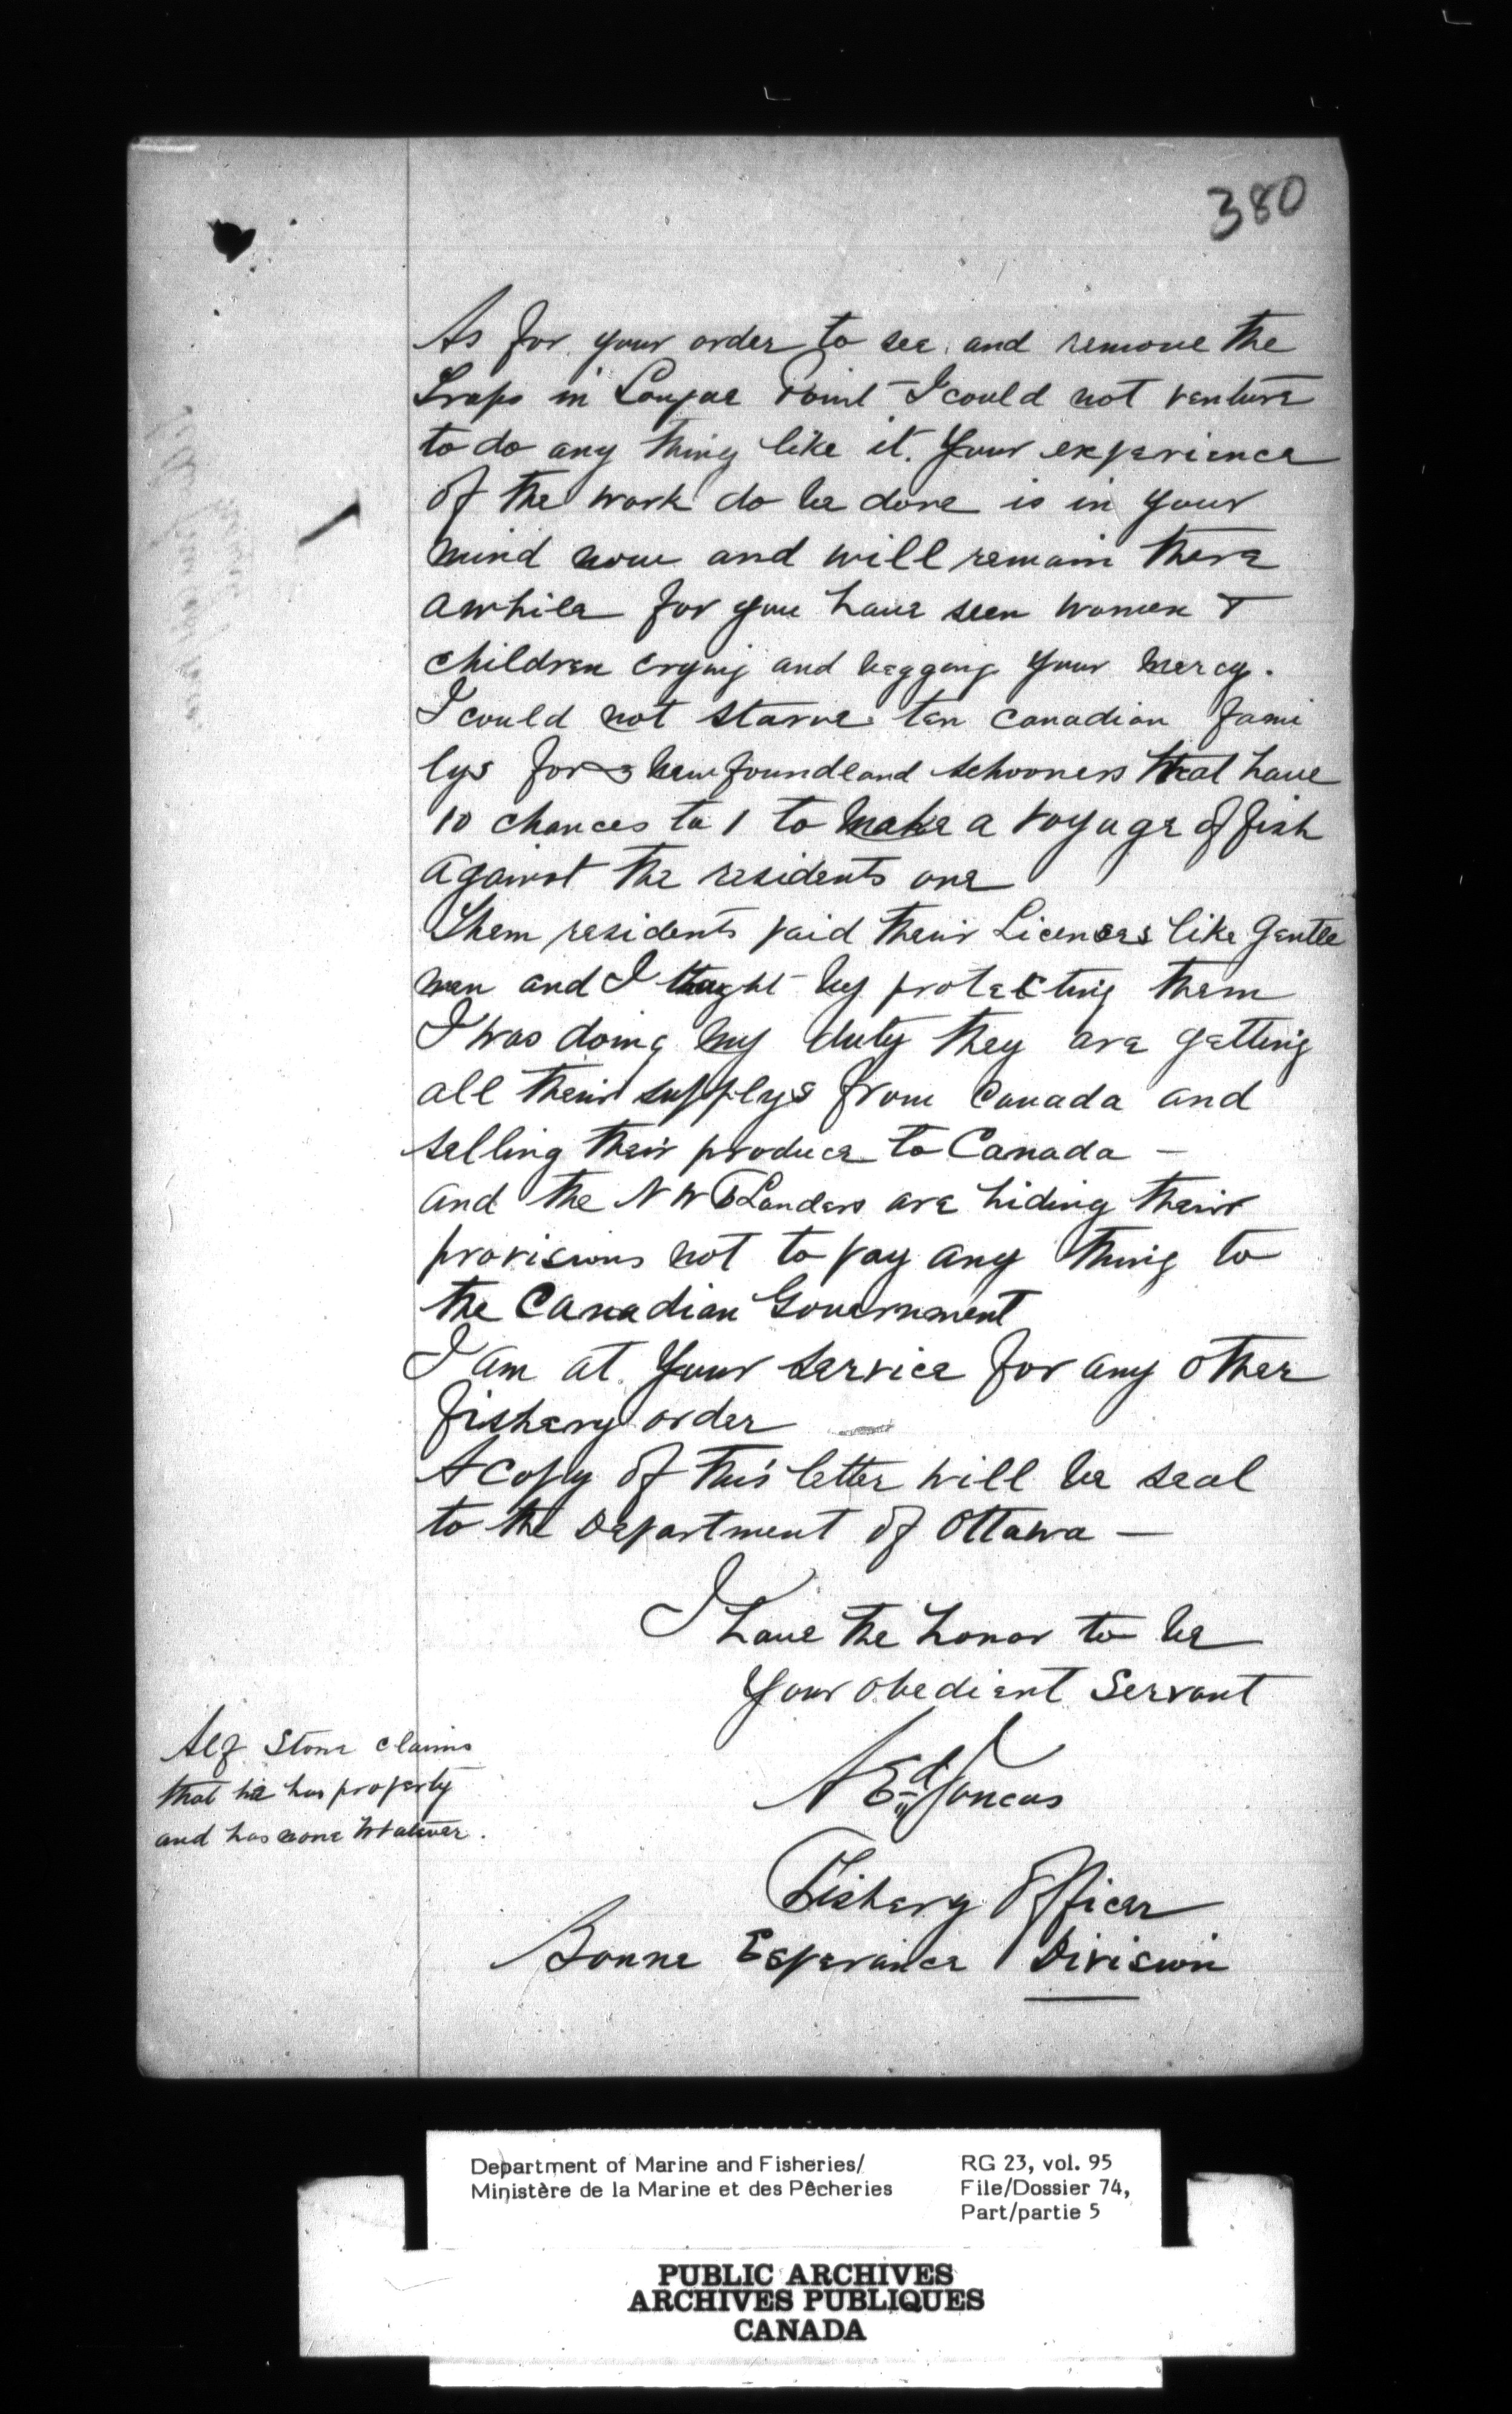 380
As for your order to see and remove the
Traps in Longue Point I could not venture
to do any thing like it. Your experience
of the work do be done is in your
mind now and will remain there
awhile for you have seen women &
children crying and begging your mercy.
I could not starve ten Canadian fami
lys for 3 Newfoundland schooners that have
10 chances to 1 to make a voyage of fish
against the residents one
Them residents paid their Licenses like gentle
men and I thaught by protecting them
I was doing my duty they are getting
all their supplys from Canada and
selling their produce to Canada —
and the N W F Landers are hiding their
provisions not to pay any thing to
the Canadian Government
I am at your service for any other
fishery order
A copy of this letter will be seal
to the Department of Ottawa —
I have the honor to be
Your obedient Servant
Alf Stone claims
that he has property
and has none whatever.
N Ed Joncas
Fishery Officer
Bonne Esperance Division
Department of Marine and Fisheries/
Ministère de la Marine et des Pêcheries
RG 23, vol. 95
File/Dossier 74,
Part/partie 5
PUBLIC ARCHIVES
ARCHIVES PUBLIQUES
CANADA